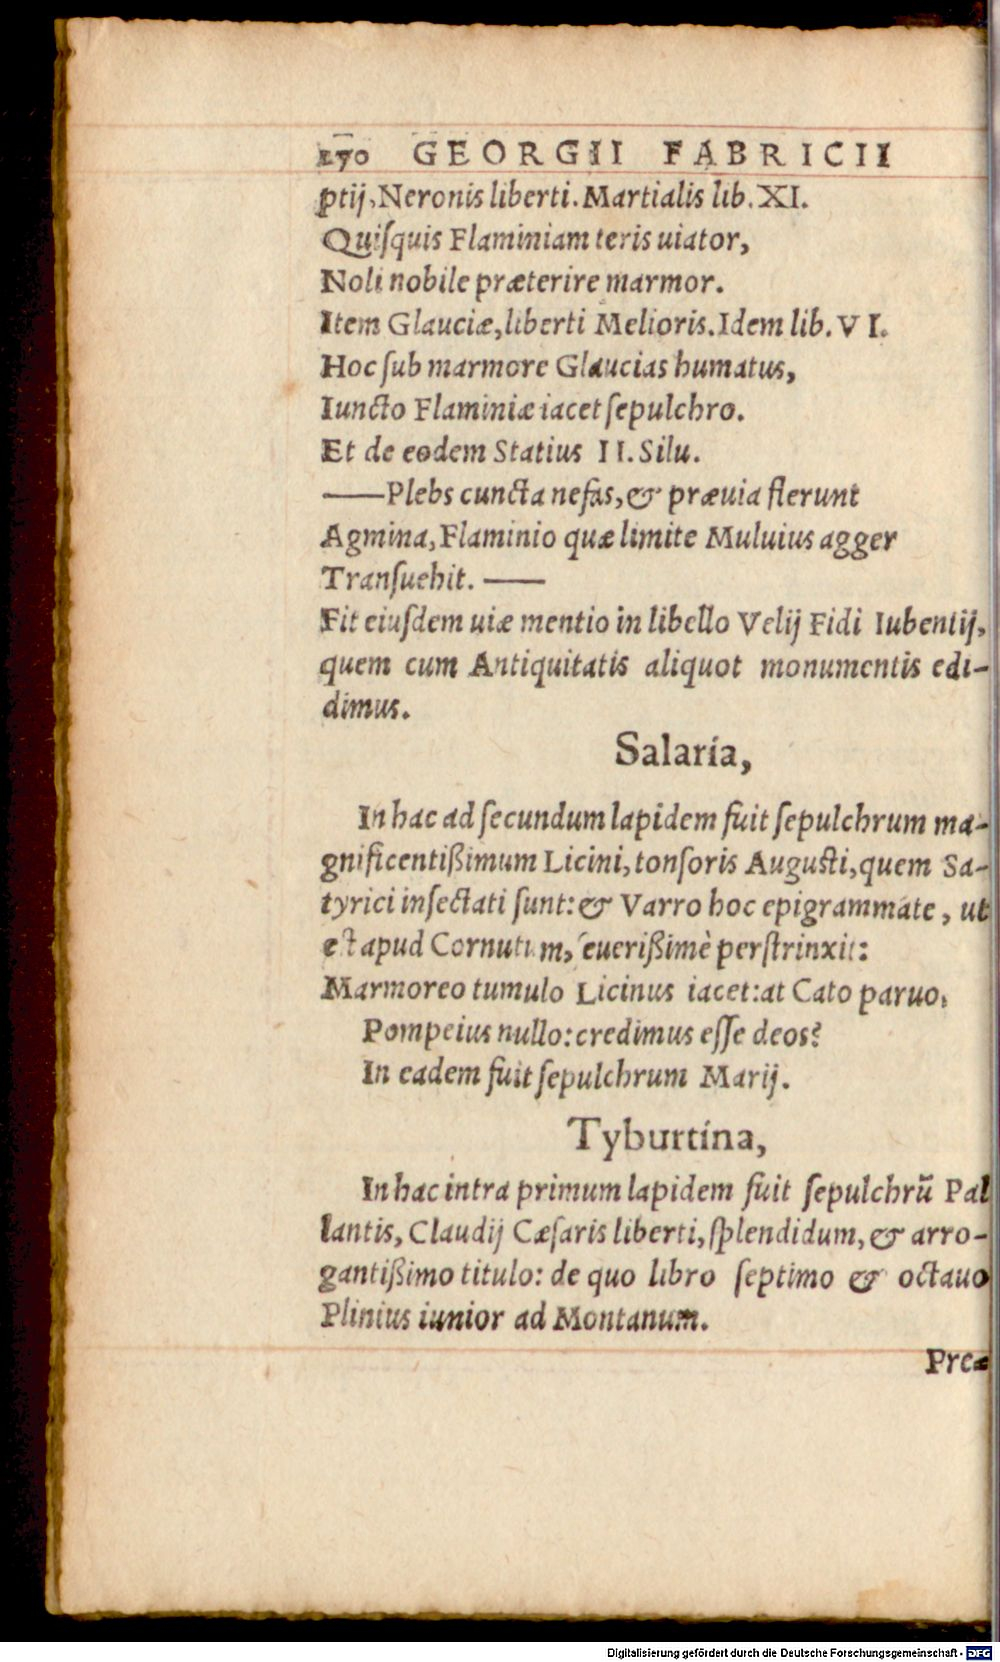 170 GEORGII FABRICII
ptij, Neronis liberti. Martialis lib. XI.
Quiſquis Flaminiam teris uiator,
Noli nobile præterire marmor.
Item Glauciæ, liberti Melioris. Idem lib. VI.
Hoc ſub marmore Glaucias humatus,
Iuncto Flaminiæ iacet ſepulchro.
Et de eodem Statius II. Silu.
——Plebs cuncta nefas, & præuia flerunt
Agmina, Flaminio quæ limite Muluius agger
Tranſuehit. ——
Fit eiuſdem uiæ mentio in libello Velij Fidi Iubentij,
quem cum Antiquitatis aliquot monumentis edi-
dimus.
Salaria,
In hac ad ſecundum lapidem fuit ſepulchrum ma-
gnificentißimum Licini, tonſoris Auguſti, quem Sa-
tyrici inſectati ſunt: & Varro hoc epigrammate, ut
eſt apud Cornutum, ſeuerißimè perſtrinxit:
Marmoreo tumulo Licinus iacet: at Cato paruo,
Pompeius nullo: credimus eſſe deos?
In eadem fuit ſepulchrum Marij.
Tyburtina,
In hac intra primum lapidem fuit ſepulchrũ Pal
lantis, Claudij Cæſaris liberti, ſplendidum, & arro-
gantißimo titulo: de quo libro ſeptimo & octauo
Plinius iunior ad Montanum.
Præ-
Digitalisierung gefördert durch die Deutsche Forschungsgemeinschaft - DFG